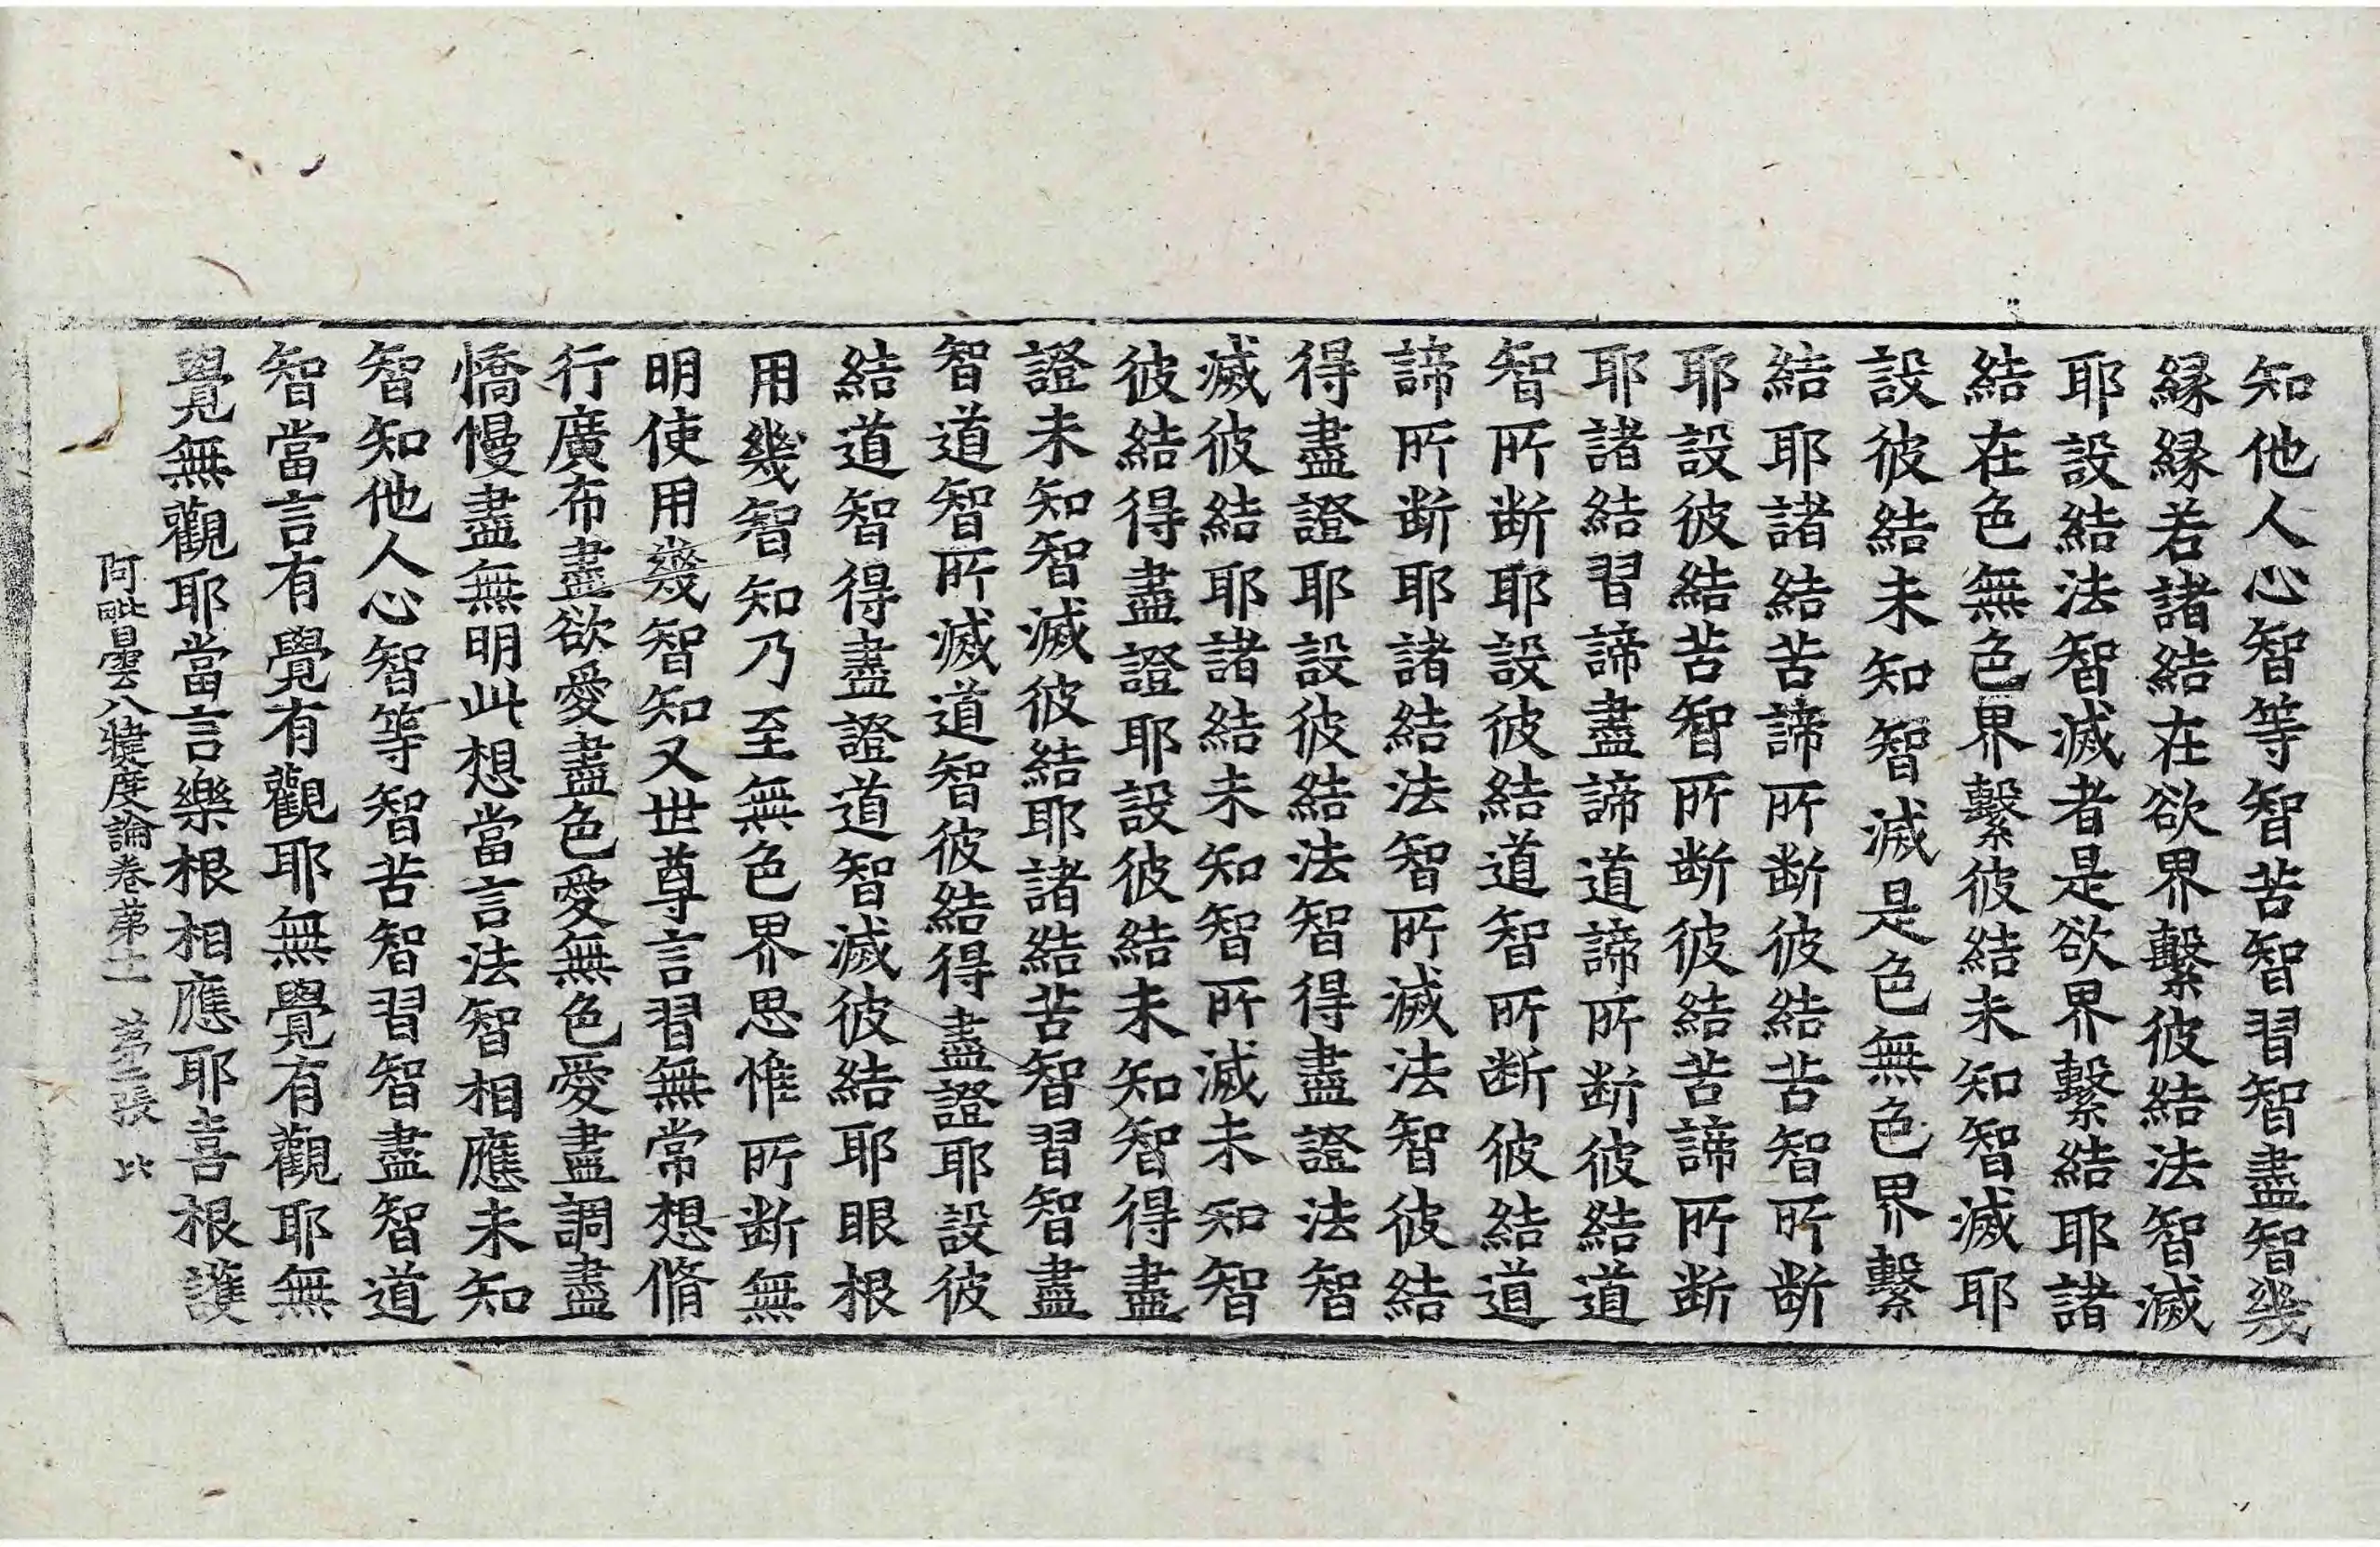 知他人心智等智苦智習智盡智幾
縁縁若諸結在欲界繫彼結法智滅
耶設結法智滅者是欲界繫結耶諸
結在色無色界繫彼結未知智滅耶
設彼結未知智滅是色無色界繫
結耶諸結苦諦所断彼結苦智所断
耶設彼結苦智所断彼結苦諦所断
耶諸結習諦盡諦道諦所断彼結道
智所断耶設彼結道智所断彼結道
諦所断耶諸結法智所滅法智彼結
得盡證耶設彼結法智得盡證法智
滅彼結耶諸結未知智所滅未知智
彼結得盡證耶設彼結未知智得盡
證未知智滅彼結耶諸結苦智習智盡
智道智所滅道智彼結得盡證耶設彼
結道智得盡證道智滅彼結耶眼根
用幾智知乃至無色界思惟所断無
明使用幾智知又世尊言習無常想脩
行廣布盡欲愛盡色愛無色愛盡調盡
憍慢盡無明此想當言法智相應未知
智知他人心智等智苦智習智盡智道
智當言有覺有觀耶無覺有觀耶無
覺無觀耶當言樂根相應耶喜根護
阿毗曇八犍度論卷苐十一 苐二張 比